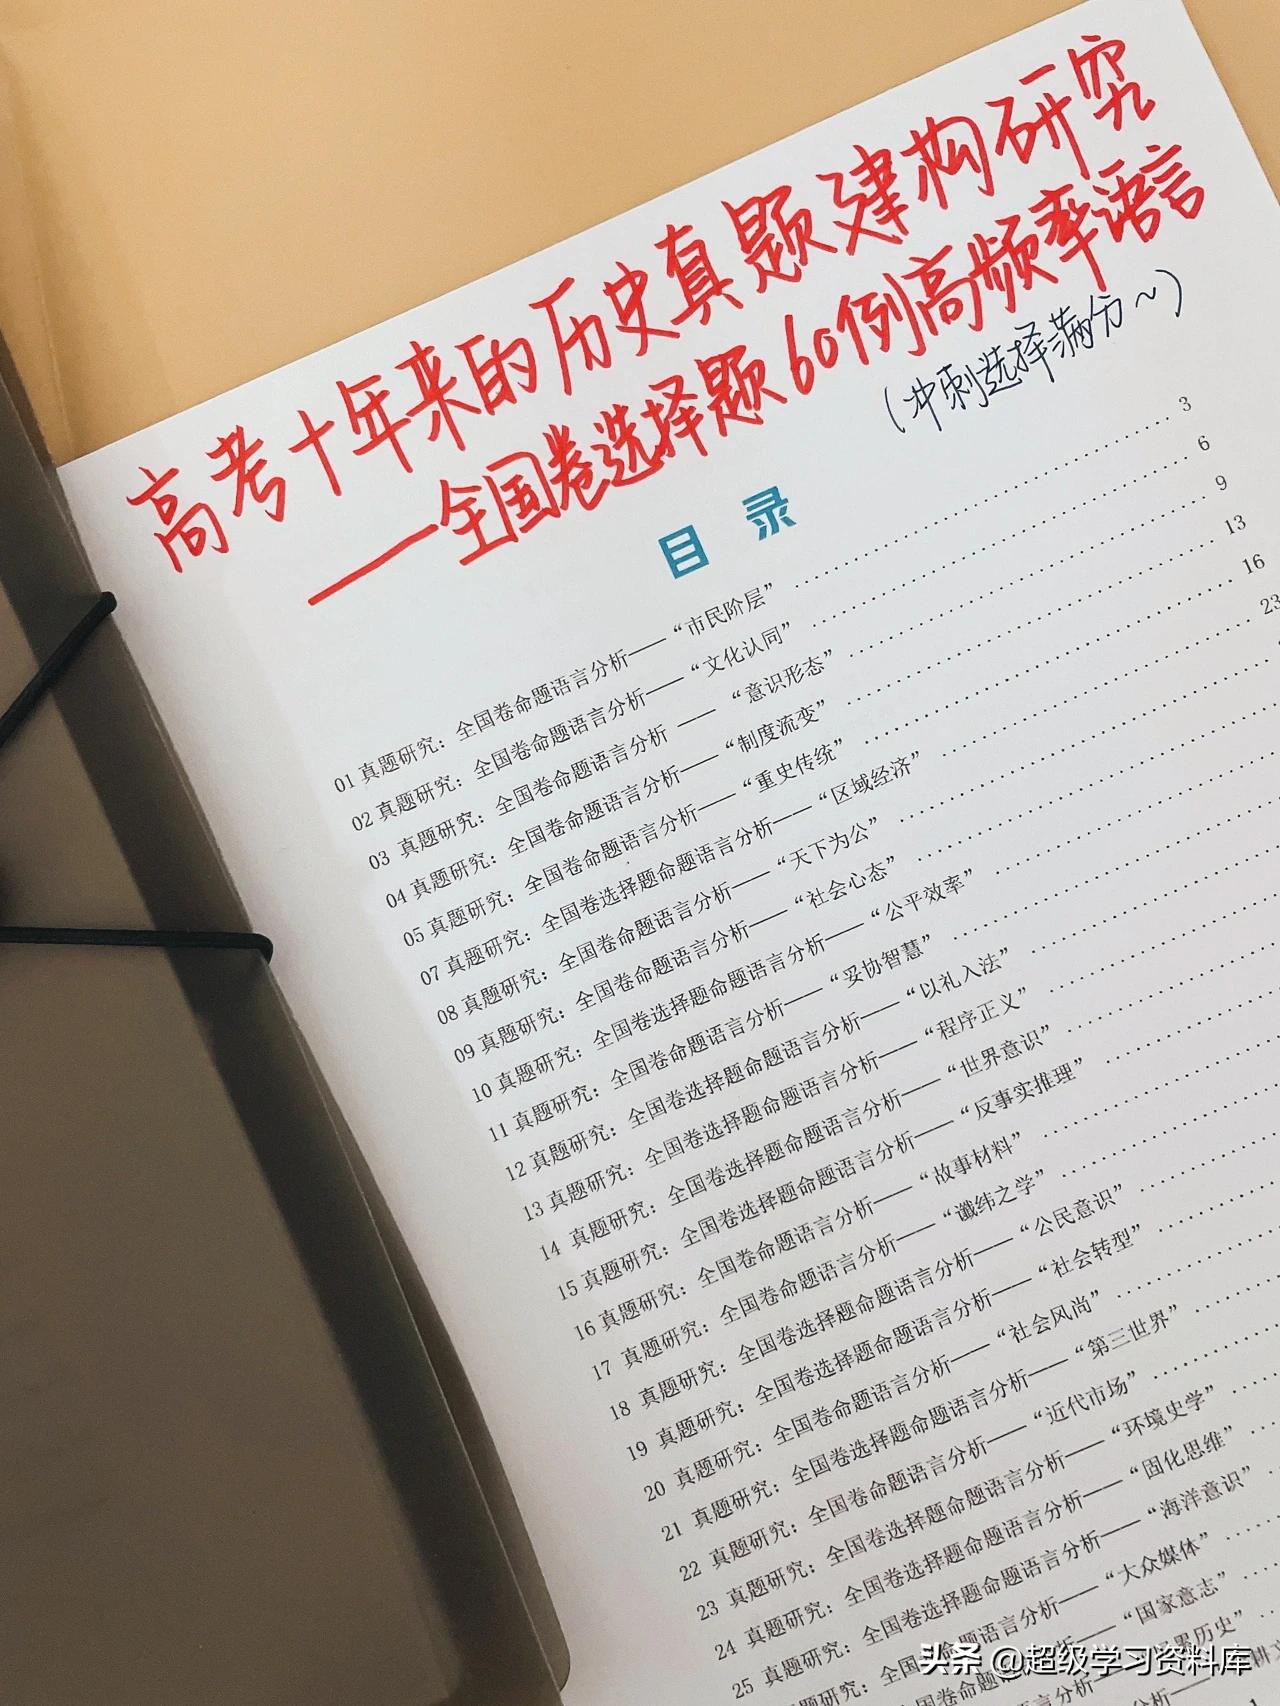 高考十年来的历史真题建构研究
——全国卷选择题60例高频率语言
(冲刺选择满分~)
目 录
01 真题研究：全国卷命题语言分析——“市民阶层” 3
02 真题研究：全国卷命题语言分析——“文化认同” 6
03 真题研究：全国卷命题语言分析 ——“意识形态” 9
04 真题研究：全国卷命题语言分析——“制度流变” 13
05 真题研究：全国卷命题语言分析——“重史传统” 16
07 真题研究：全国卷选择题命题语言分析——“区域经济” 23
08 真题研究：全国卷命题语言分析——“天下为公”
09 真题研究：全国卷命题语言分析——“社会心态”
10 真题研究：全国卷选择题命题语言分析——“公平效率”
11 真题研究：全国卷命题语言分析——“妥协智慧”
12 真题研究：全国卷选择题命题语言分析——“以礼入法”
13 真题研究：全国卷选择题命题语言分析——“程序正义”
14 真题研究：全国卷选择题命题语言分析——“世界意识”
15 真题研究：全国卷选择题命题语言分析——“反事实推理”
16 真题研究：全国卷命题语言分析——“故事材料”
17 真题研究：全国卷命题语言分析——“谶纬之学”
18 真题研究：全国卷选择题命题语言分析——“公民意识”
19 真题研究：全国卷选择题命题语言分析——“社会转型”
20 真题研究：全国卷命题语言分析——“社会风尚”
21 真题研究：全国卷选择题命题语言分析——“第三世界”
22 真题研究：全国卷命题语言分析——“近代市场”
23 真题研究：全国卷选择题命题语言分析——“环境史学”
24 真题研究：全国卷选择题命题语言分析——“固化思维”
25 真题研究：全国卷选择题命题语言分析——“海洋意识”
全国卷命题语言分析——“大众媒体”
“国家意志”
历史”
头条 @超级学习资料库